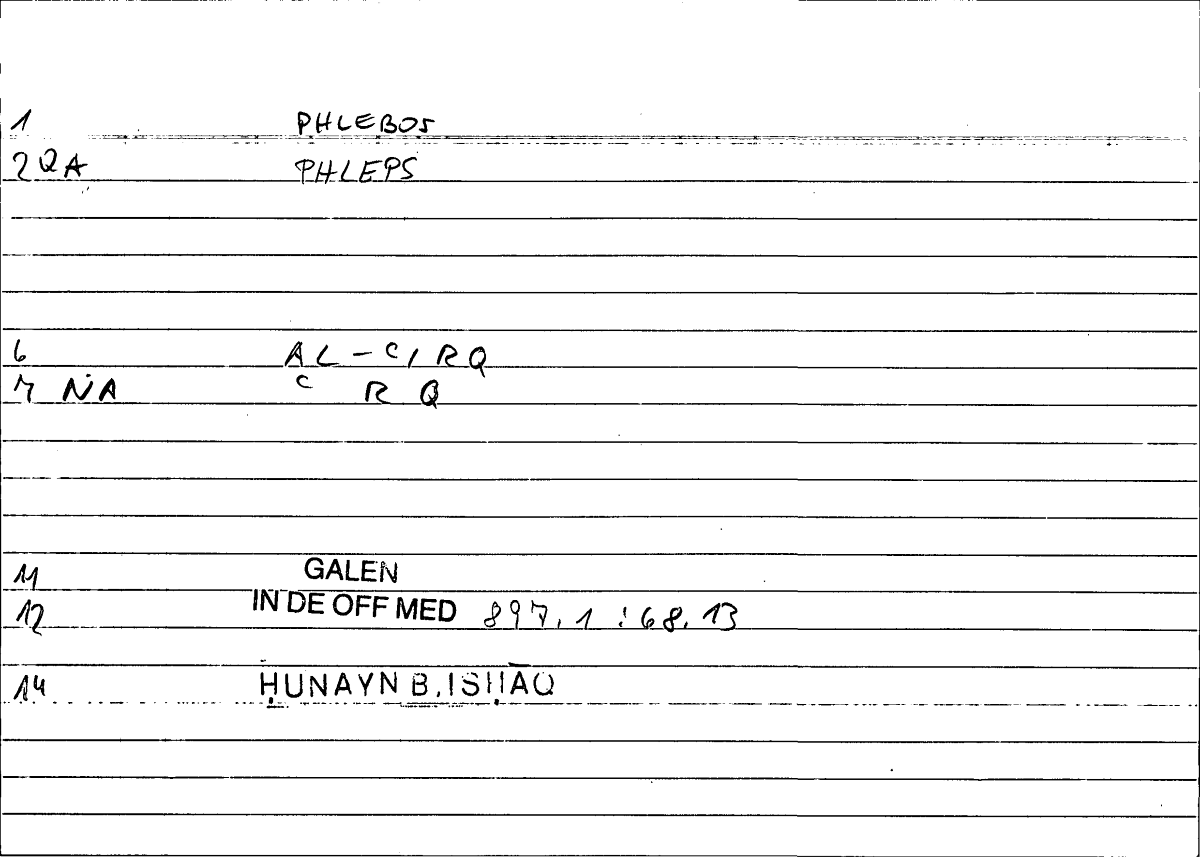 1 PHLEBOS
2 QA PHLEPS
6 AL-ʿIRQ
7 NA ʿ R Q
11 GALEN
12 IN DE OFF MED 897.1 : 68.13
14 ḤUNAYN B. ISḤĀQ